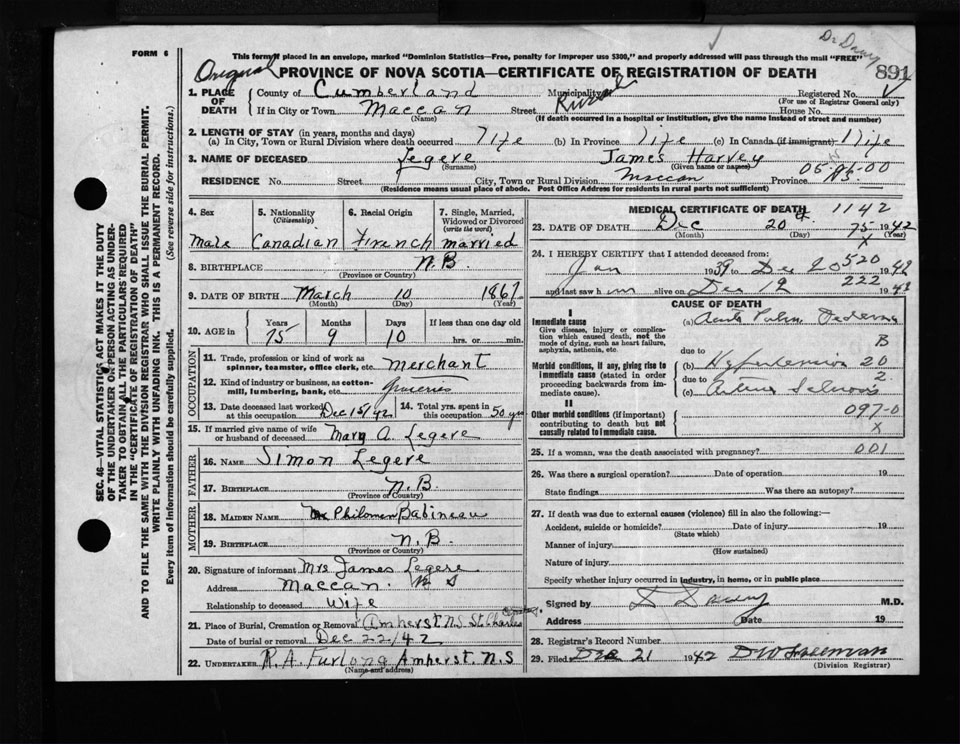 FORM 6
This form, if placed in an envelope, marked "Dominion Statistics—Free, penalty for improper use $300," and properly addressed will pass through the mail "FREE"
Original PROVINCE OF NOVA SCOTIA—CERTIFICATE OF REGISTRATION OF DEATH 891
1. PLACE OF DEATH County of Cumberland Municipality Registered No.
(For use of Registrar General only)
If in City or Town Maccan Street House No.
(Name) (If death occurred in a hospital or institution, give the name instead of street and number)
2. LENGTH OF STAY (in years, months and days)
(a) In City, Town or Rural Division where death occurred life (b) In Province life (c) In Canada (if immigrant) life
3. NAME OF DECEASED Legere James Harvey
(Surname) (Given name or names)
RESIDENCE No. Street City, Town or Rural Division Maccan Province N.S.
(Residence means usual place of abode. Post Office Address for residents in rural parts not sufficient)
4. Sex Male
5. Nationality (Citizenship) Canadian
6. Racial Origin French
7. Single, Married, Widowed or Divorced (write the word) married
8. BIRTHPLACE N.B.
(Province or Country)
9. DATE OF BIRTH March 10 1867
(Month) (Day) (Year)
10. AGE in Years Months Days If less than one day old
75 9 10 hrs. or min.
OCCUPATION
11. Trade, profession or kind of work as spinner, teamster, office clerk, etc. Merchant
12. Kind of industry or business, as cotton-mill, lumbering, bank, etc. groceries
13. Date deceased last worked at this occupation Dec 15/42
14. Total yrs. spent in this occupation 50 yrs
15. If married give name of wife or husband of deceased Mary A. Legere
FATHER
16. NAME Simon Legere
17. BIRTHPLACE N.B.
(Province or Country)
MOTHER
18. MAIDEN NAME Philomen Babineau
19. BIRTHPLACE N.B.
(Province or Country)
20. Signature of informant Mrs James Legere
Address Maccan. N S
Relationship to deceased Wife
21. Place of Burial, Cremation or Removal Amherst. N.S. St. Charles
Date of burial or removal Dec 22/42
22. UNDERTAKER R.A. Furlong Amherst. N.S
(Name and address)
MEDICAL CERTIFICATE OF DEATH 1142
23. DATE OF DEATH Dec 20 1942
(Month) (Day) (Year)
24. I HEREBY CERTIFY that I attended deceased from:
Jan 1939 to Dec 20 1942
520
and last saw him alive on Dec 19 194
222
CAUSE OF DEATH
I
Immediate cause
Give disease, injury or complication which caused death, not the mode of dying, such as heart failure, asphyxia, asthenia, etc.
(a)
B
due to
Morbid conditions, if any, giving rise to immediate cause (stated in order proceeding backwards from immediate cause).
(b) Hypertension 20
due to
(c) 2
II
Other morbid conditions (if important) contributing to death but not causally related to immediate cause.
097-0
X
25. If a woman, was the death associated with pregnancy? 001
26. Was there a surgical operation? Date of operation 19
State findings Was there an autopsy?
27. If death was due to external causes (violence) fill in also the following:—
Accident, suicide or homicide? Date of injury 19
(State which)
Manner of injury
(How sustained)
Nature of injury
Specify whether injury occurred in industry, in home, or in public place
Signed by M.D.
Address Date 19
28. Registrar's Record Number
29. Filed Dec 21 1942
(Division Registrar)
SEC. 46—VITAL STATISTICS ACT MAKES IT THE DUTY OF THE UNDERTAKER OR PERSON ACTING AS UNDERTAKER TO OBTAIN ALL THE PARTICULARS REQUIRED IN THE "CERTIFICATE OF REGISTRATION OF DEATH" AND TO FILE THE SAME WITH THE DIVISION REGISTRAR WHO SHALL ISSUE THE BURIAL PERMIT.
WRITE PLAINLY WITH UNFADING INK. THIS IS A PERMANENT RECORD.
Every item of information should be carefully supplied. (See reverse side for instructions.)